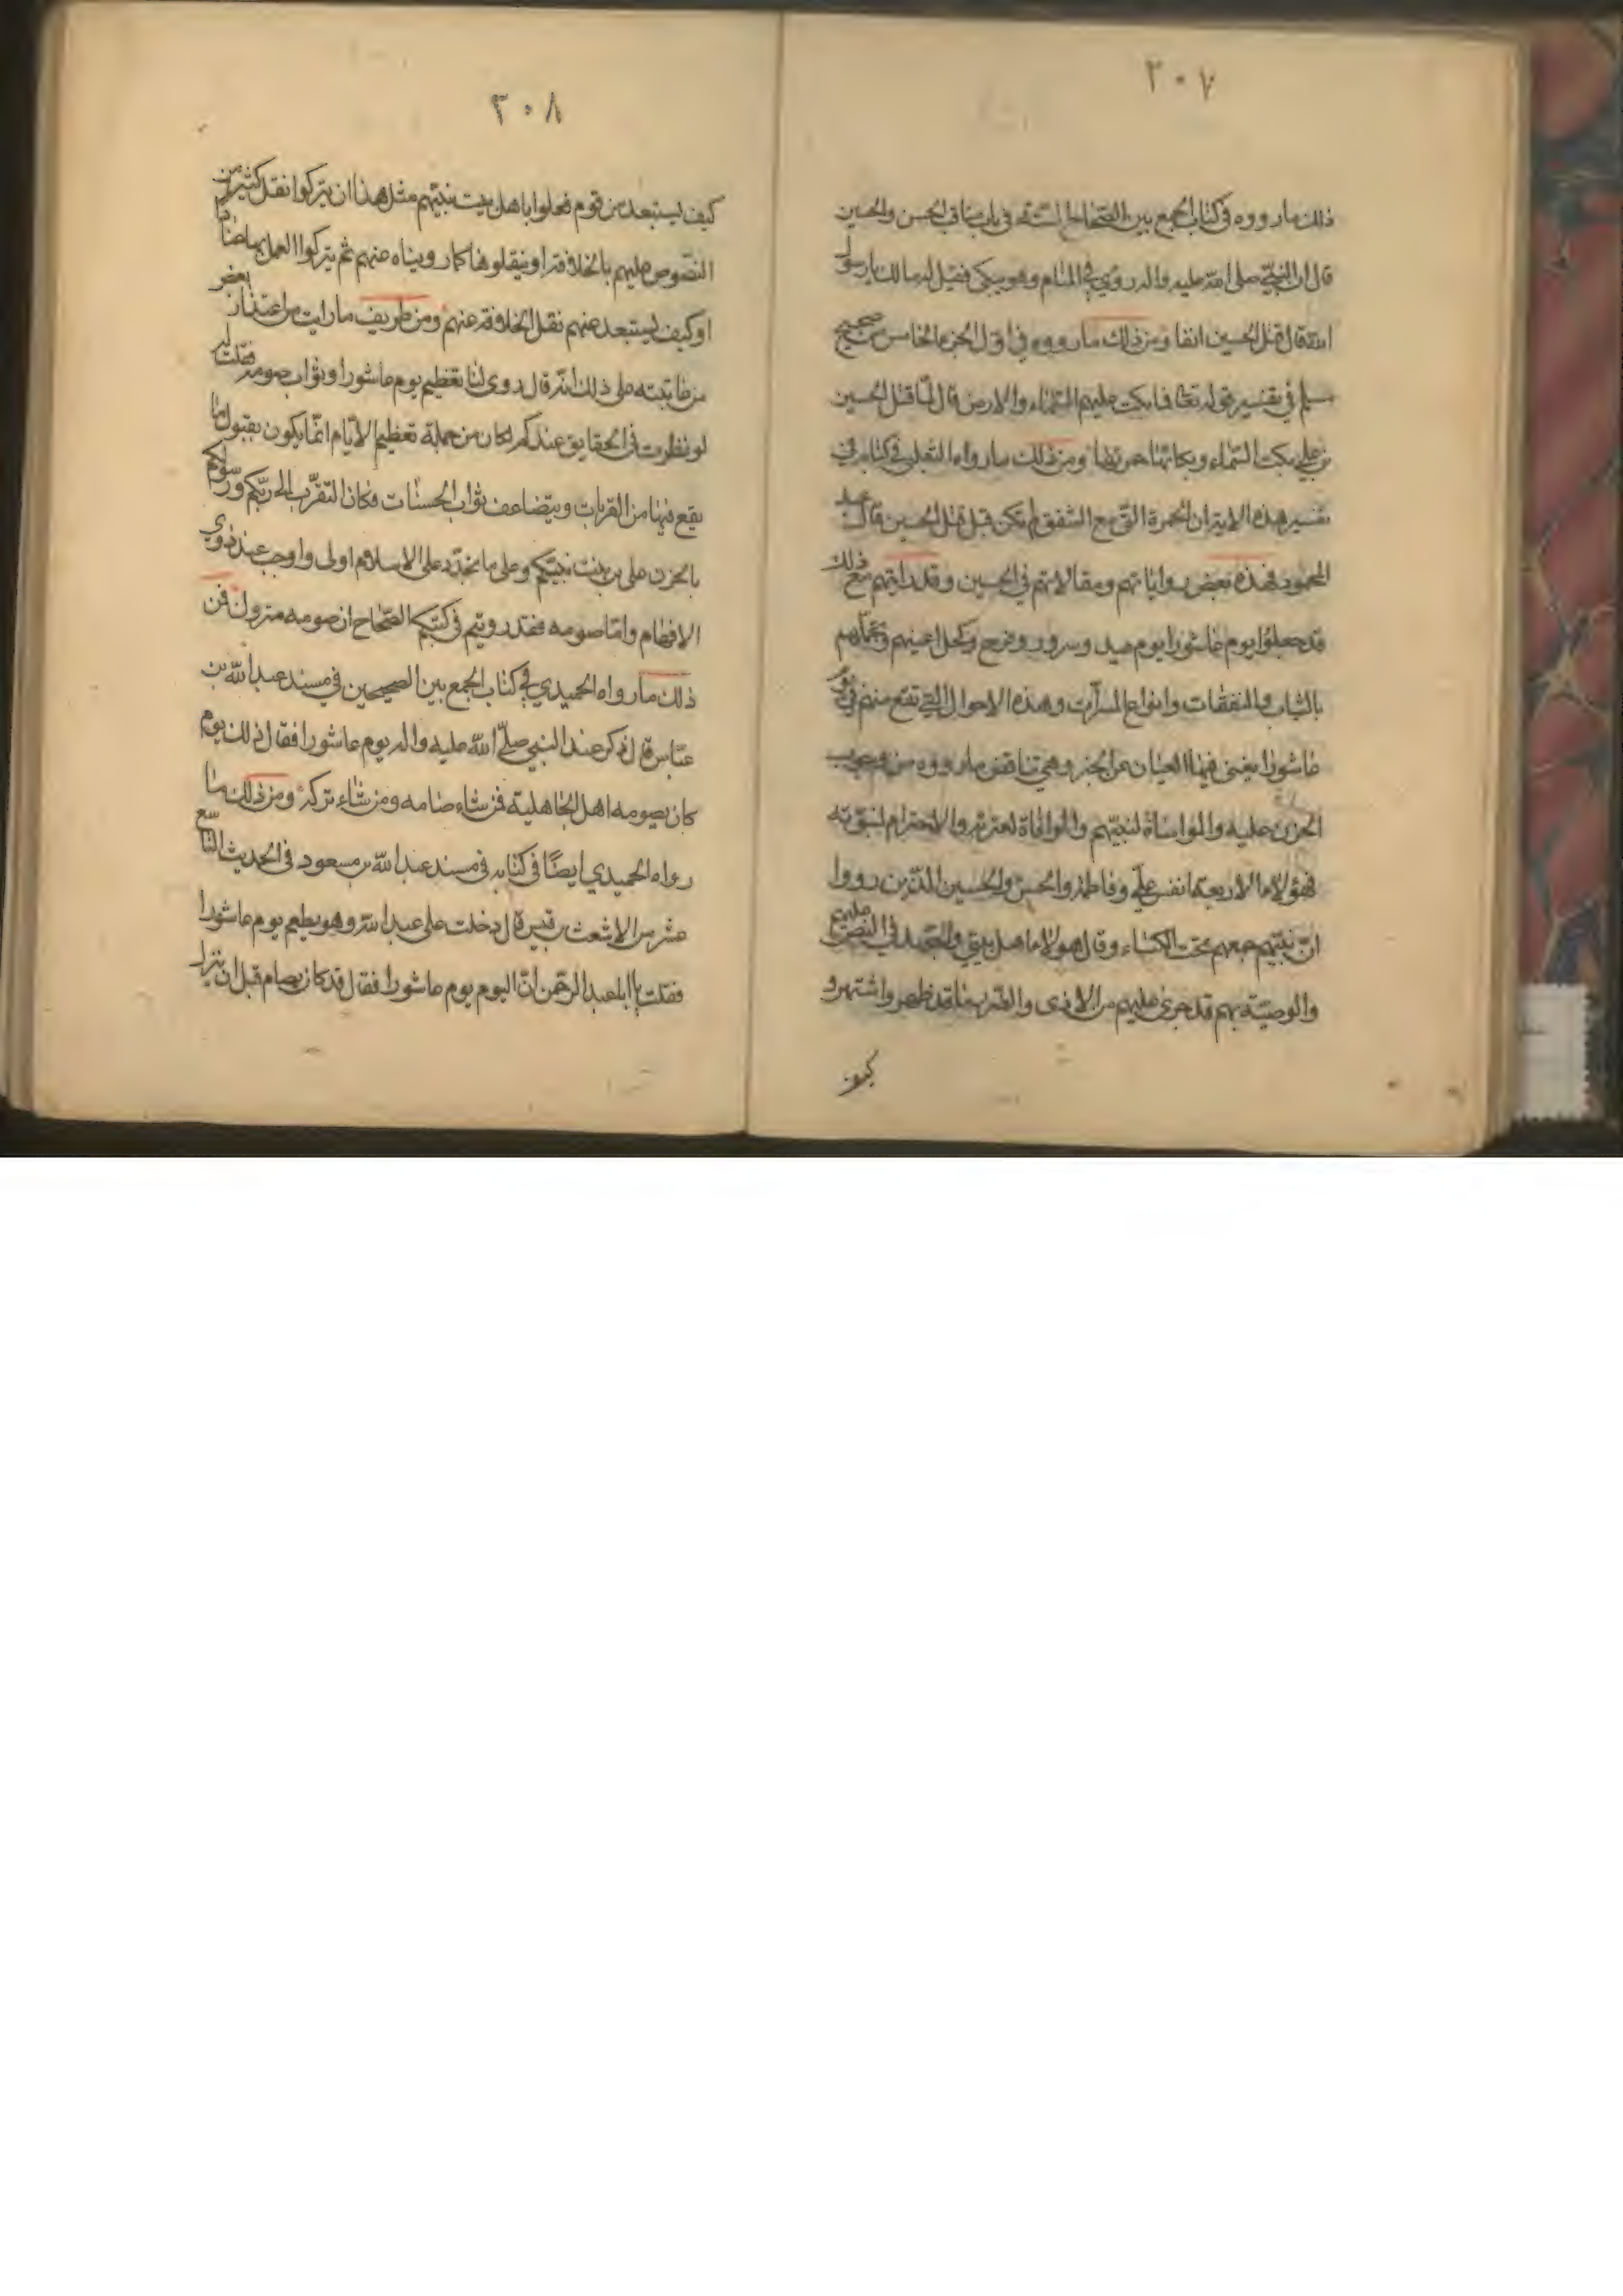 ٣٠٧
ذلك مارووه في كتاب الجمع بين الصحاح الستة في باب مناقب الحسن والحسين
قال ان النبي صلى الله عليه واله روي في المنام وهو يبكي فقيل له مالك يارسول
الله قال قتل الحسين انفا ومن ذلك مارووه في اول الجزء الخامس من صحيح
مسلم في تفسير قوله تعالى فما بكت عليهم السماء والارض قال لما قتل الحسين
بن علي بكت السماء وبكائها حمرتها ومن ذلك مارواه الثعلبي في كتابه في
تفسير هذه الاية ان الحمرة التي مع الشفق لم تكن قبل قتل الحسين قال عبد
المحمود فهذه بعض رواياتهم ومقالاتهم في الحسين وقد رايتهم مع ذلك
قد جعلوا يوم عاشورا يوم عيد وسرور وفرح وكحل اعينهم وتجملهم
بالثياب والنفقات وانواع المسرات وهذه الاحوال التي تقع منهم في يوم
عاشورا يغني فيها العيان عن الخبر وهي تناقض مارووه من وجوب
الحزن عليه والمواساة لنبيهم والموافاة لعترته والاحترام لنبوته
فهؤلاء الاربعة انفس علي وفاطمة والحسن والحسين الذين رووا
ان نبيهم جمعهم تحت الكساء وقال هولاء اهل بيتي والعهد في النص عليهم
والوصية بهم قد جرى عليهم من الاذى والظلم بهما قد ظهر واشتهر و
كيف
٣٠٨
كيف يستبعد من قوم فعلوا باهل بيت نبيهم مثل هذا ان يتركوا نقل كثير من
النصوص عليهم بالخلافة او نيقلوها كما رويناه عنهم ثم يتركوا العمل بها
او كيف يستبعد عنهم نقل الخلافة عنهم ومن طريف مارايت من اعتذار بعض
من عاتبته على ذلك انه قال روى لنا تعظيم يوم عاشورا وثواب صومه فقلت له
لو نظرت في الحقايق عندكم لكان من جملة تعظيم الايام انما يكون بقبول ما
يقع فيها من القربات ويتضاعف ثواب الحسنات فكان التقرب الى ربكم ورسولكم
بالحزن على بن بنت نبيكم وعلى ما تجدد على الاسلام اولى واوجب عند ذوي
الافهام واما صومه فقد رويتم في كتبكم الصحاح ان صومه متروك فمن
ذلك مارواه الحميدي في كتاب الجمع بين الصحيحين في مسند عبد الله بن
عباس قال ذكر عند النبي صلى الله عليه واله يوم عاشورا فقال ذلك يوم
كان يصومه اهل الجاهلية فمن شاء صامه ومن شاء تركه ومن ذلك ما
رواه الحميدي ايضا في كتابه في مسند عبد الله بن مسعود في الحديث التاسع
عشر من الاشعث بن قيس قال دخلت على عبد الله وهو يطعم يوم عاشورا
فقلت يا ابا عبد الرحمن ان اليوم يوم عاشورا فقال قد كان يصام قبل ان ينزل